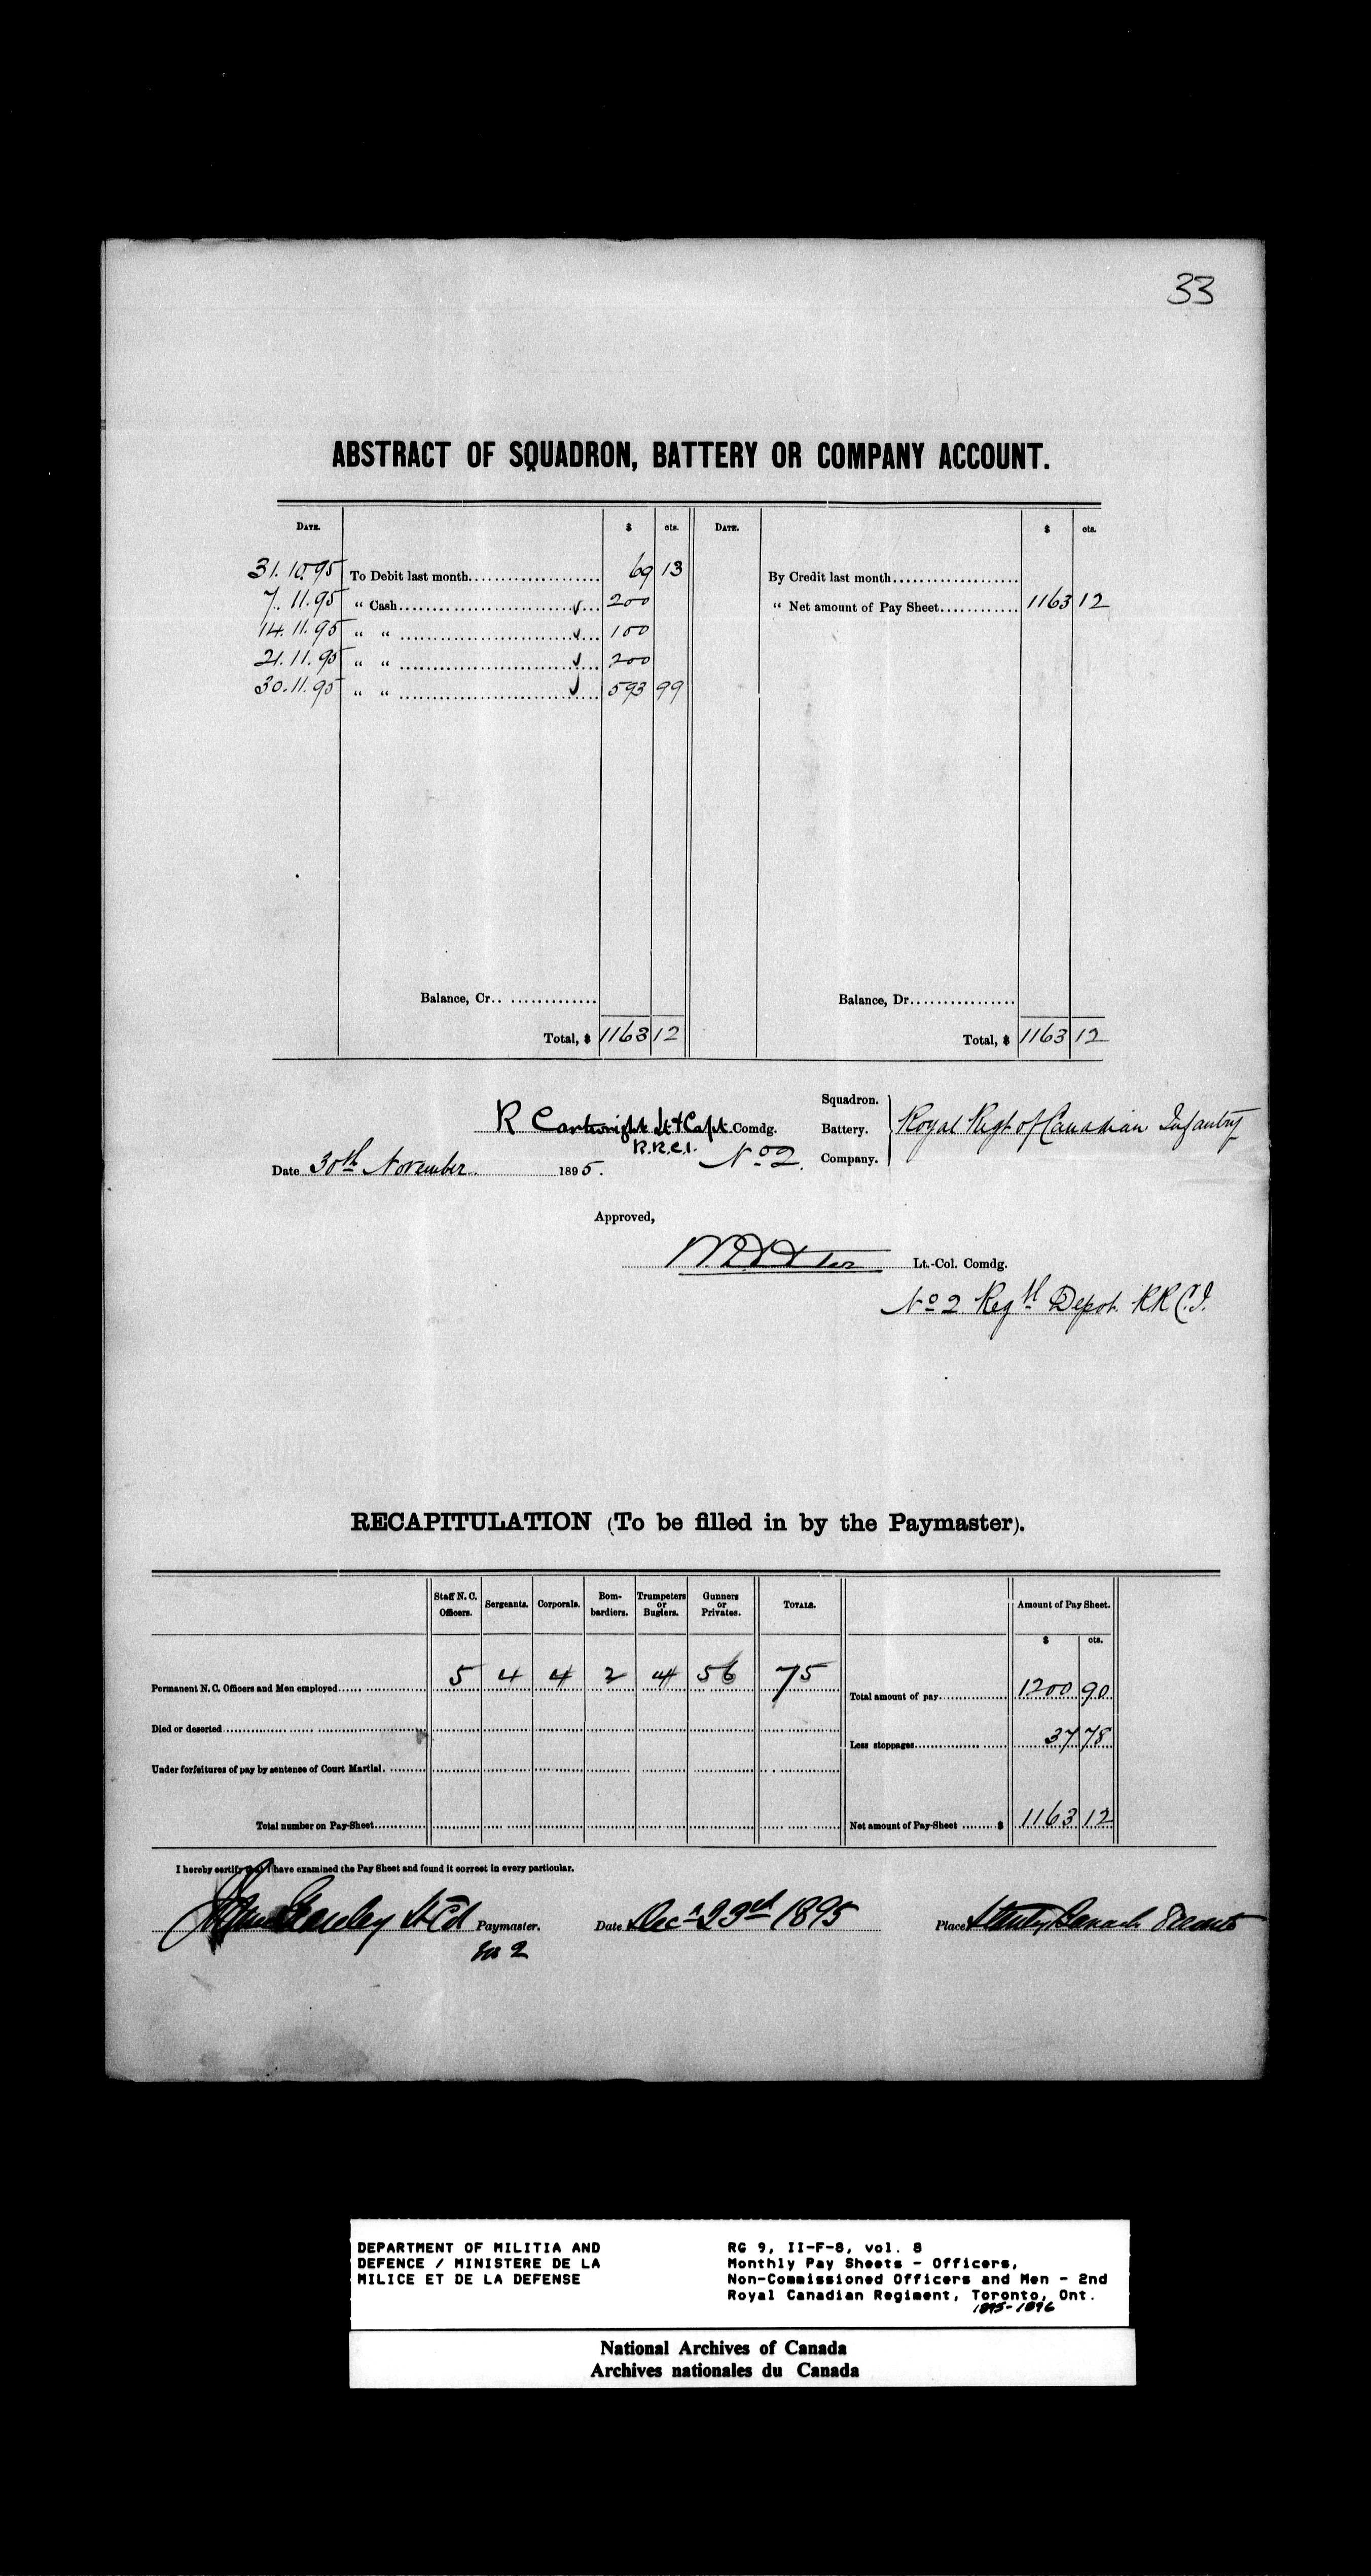 33
ABSTRACT OF SQUADRON, BATTERY OR COMPANY ACCOUNT.
DATE. $ cts. DATE. $ cts.
31.10.95 To Debit last month 69 13 By Credit last month
7.11.95 " Cash 200 " Net amount of Pay Sheet 1163 12
14.11.95 " " 100
21.11.95 " " 200
30.11.95 " " 593 99
Balance, Cr. Balance, Dr.
Total, $ 1163 12 Total, $ 1163 12
Squadron.
R Cartwright Lt & Capt Comdg. Battery. Royal Regt of Canadian Infantry
R.R.C.I. No 2. Company.
Date 30th November 1895.
Approved,
Lt.-Col. Comdg.
No 2 Regtl Depot. RRC.I.
RECAPITULATION (To be filled in by the Paymaster).
Staff N. C. Officers. Sergeants. Corporals. Bombardiers. Trumpeters or Buglers. Gunners or Privates. TOTALS. Amount of Pay Sheet.
$ cts.
Permanent N. C. Officers and Men employed 5 4 4 2 4 56 75 Total amount of pay 1200 90
Died or deserted Less stoppages 37 78
Under forfeitures of pay by sentence of Court Martial.
Total number on Pay-Sheet Net amount of Pay-Sheet $ 1163 12
I hereby certify that I have examined the Pay Sheet and found it correct in every particular.
Paymaster. Date Decr 23rd 1895 Place Stanley Barracks Toronto
No 2
DEPARTMENT OF MILITIA AND
DEFENCE / MINISTERE DE LA
MILICE ET DE LA DEFENSE
RG 9, II-F-8, vol. 8
Monthly Pay Sheets - Officers,
Non-Commissioned Officers and Men - 2nd
Royal Canadian Regiment, Toronto, Ont.
1895-1896
National Archives of Canada
Archives nationales du Canada